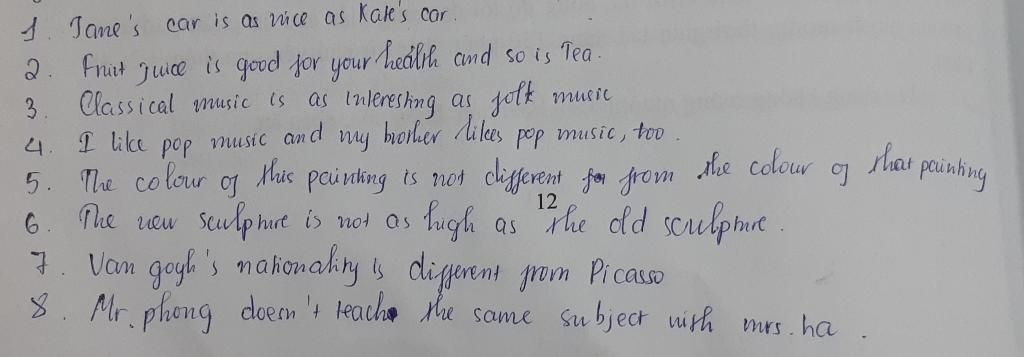 1. Jane's car is as nice as Kate's car.
2. Fruit juice is good for your health and so is Tea.
3. Classical music is as interesting as folk music
4. I like pop music and my brother likes pop music, too.
5. The colour of this painting is not different from the colour of that painting
12
6. The new sculpture is not as high as the old sculpture.
7. Van gogh's nationality is different from Picasso
8. Mr. phong doesn't teach the same subject with mrs. ha.